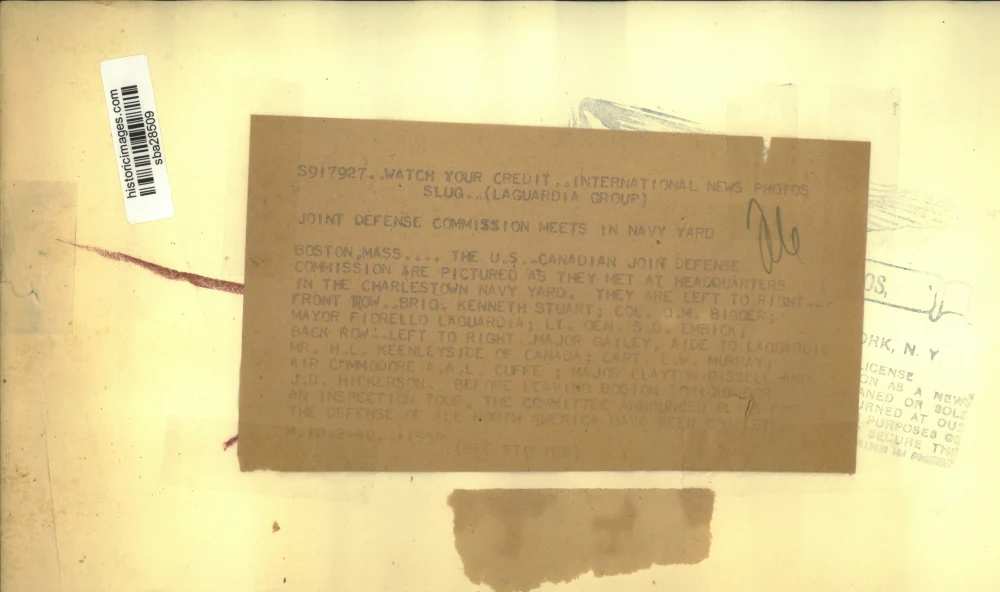 historicimages.com
sba28509
S917927..WATCH YOUR CREDIT..INTERNATIONAL NEWS PHOTOS
SLUG..(LAGUARDIA GROUP)
JOINT DEFENSE COMMISSION MEETS IN NAVY YARD
BOSTON,MASS.... THE U.S.-CANADIAN JOINT DEFENSE
COMMISSION ARE PICTURED AS THEY MET AT HEADQUARTERS
IN THE CHARLESTOWN NAVY YARD. THEY ARE LEFT TO RIGHT
FRONT ROW--BRIG. KENNETH STUART; COL. O.M. BIGGER;
MAYOR FIORELLO LAGUARDIA; LT. GEN. S.D. EMBICK;
BACK ROW--LEFT TO RIGHT. MAJOR GAILEY, AIDE TO LAGUARDIA
MR. H.L. KEENLEYSIDE OF CANADA; CAPT. L.W. MURRAY;
AIR COMMODORE A.A.L. CUFFE ; MAJOR CLAYTON BISSELL AND
J.D. HICKERSON. BEFORE LEAVING BOSTON
AN INSPECTION TOUR. THE COMMITTEE ANNOUNCED
THE DEFENSE OF ALL NORTH AMERICA HAVE BEEN
26
OS.
ORK, N. Y
LICENSE
ON AS A NEWS
ANED OR SOL
URNED AT OU
PURPOSES O
SECURE TH